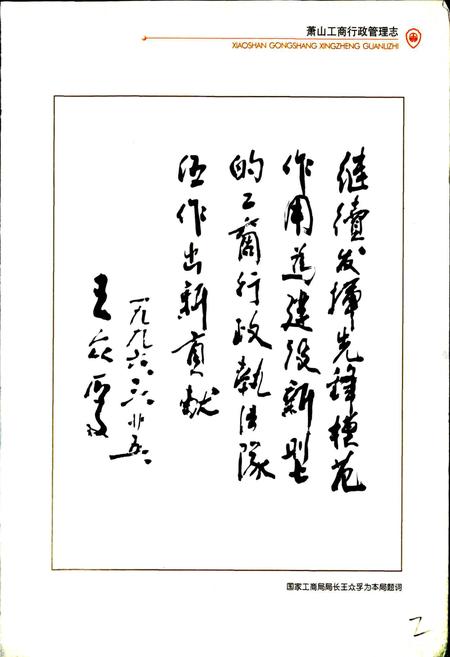 萧山工商行政管理志
XIAOSHAN GONGSHANG XINGZHENG GUANLIZHI
继续发挥先锋模范
作用为建设新型
的工商行政执法队
伍作出新贡献
一九九六.三.廿五.
王众孚
国家工商局局长王众孚为本局题词